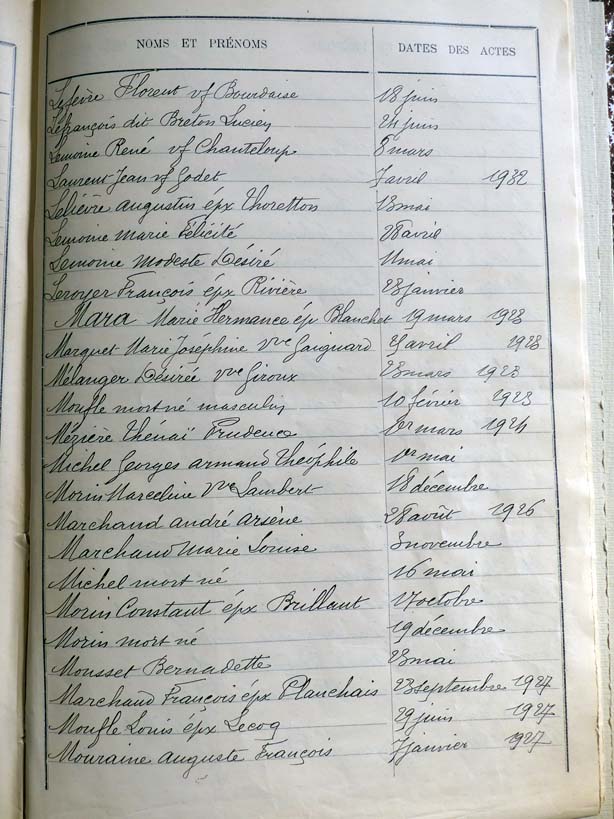 NOMS ET PRÉNOMS DATES DES ACTES
Lefèvre Florent vf Bourdaise 18 juin
Lefrançois dit Breton Lucien 24 juin
Lemoine René vf Chanteloup 8 mars
Laurent Jean vf Godet 7 avril 1932
Lelièvre Augustin épx Thoretton 13 mai
Lemoine Marie Félicité 28 avril
Lemoine Modeste Désiré 11 mai
Leroyer François épx Rivière 28 janvier
Mara Marie Hermance ép Blanchet 19 mars 1923
Marquet Marie Joséphine vve Gaignard avril 1923
Mélanger Désirée vve Giroux 23 mars 1923
Moufle mort né masculin 10 février 1923
Mézière Thénaï Prudence 1er mars 1924
Michel Georges Armand Théophile 1er mai
Morin Marceline Vve Lambert 18 décembre
Marchand André Arsène 28 août 1926
Marchand Marie Louise 3 novembre
Michel mort né 16 mai
Morin Constant épx Brillant 17 octobre
Morin mort né 19 décembre
Mousset Bernadette 23 mai
Marchand François épx Planchais 23 septembre 1927
Moufle Louis épx Lecoq 29 juin 1927
Mouraine Auguste François 7 janvier 1927